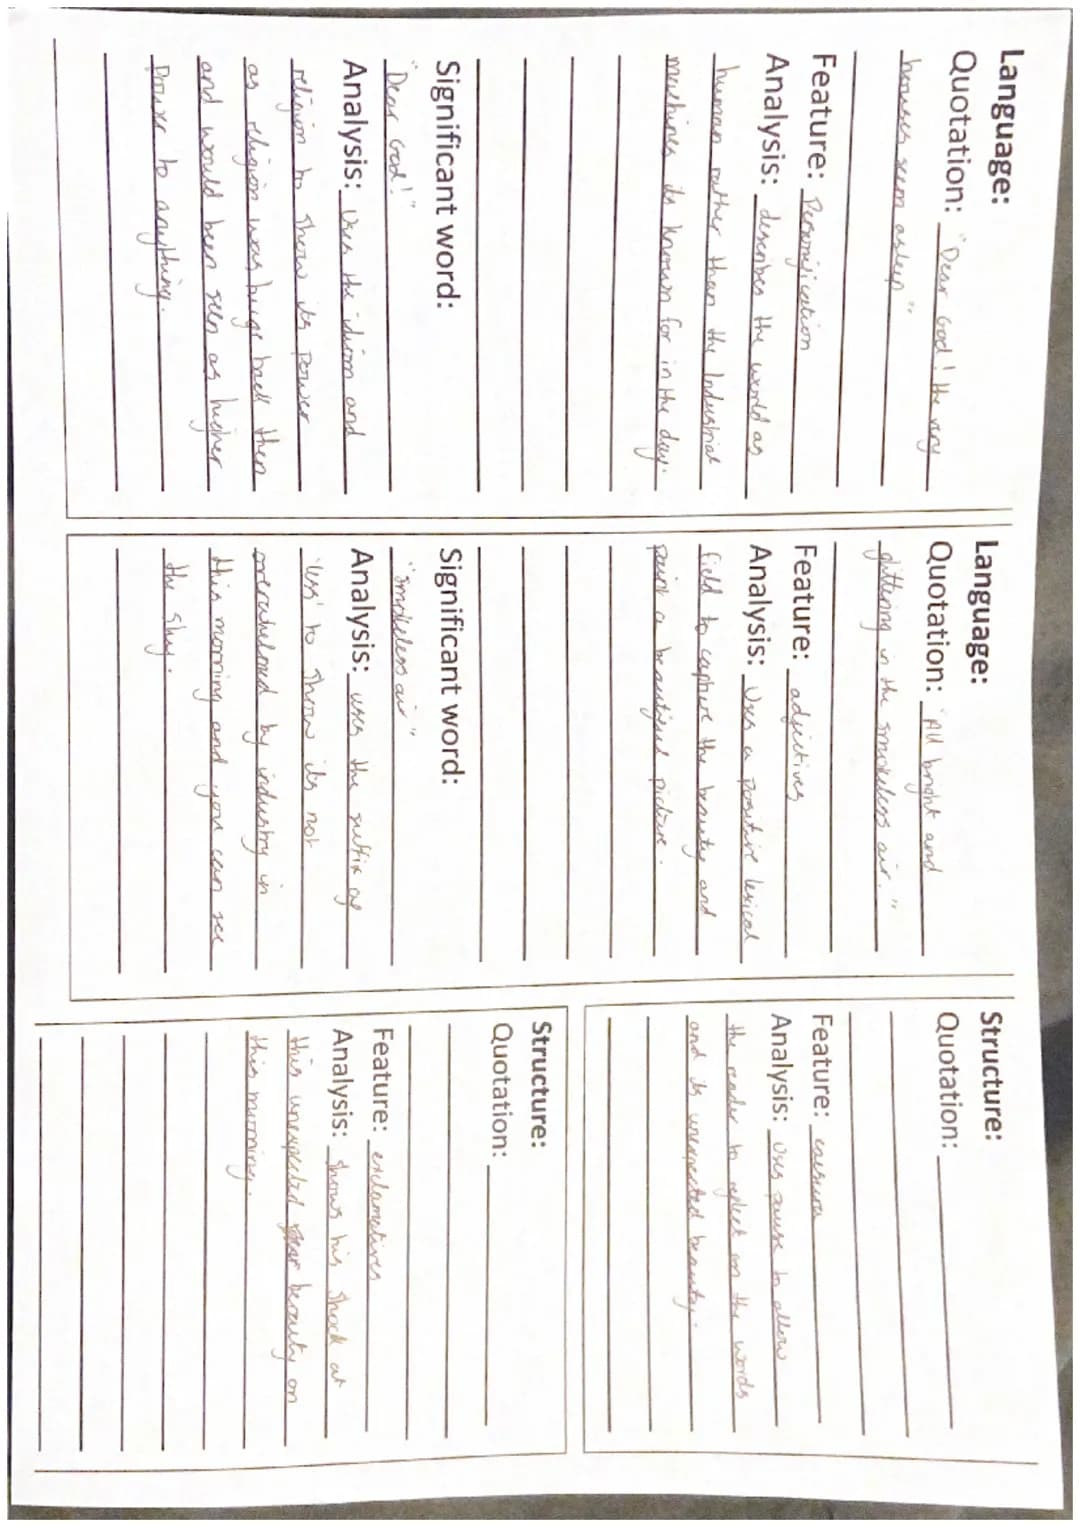 Language:
Quotation: "Dear God! the very
houses seem asleep"
Feature: Personification
Analysis: describes the world as
human rather than the Industrial
machines its known for in the day.
Significant word:
"Dear God!"
Analysis: Uses the idiom and
religion to show its power
as religion was huge back then
and would been seen as higher
Power to anything.
Language:
Quotation: "All bright and
glittering in the smokeless air."
Feature: adjectives
Analysis: Uses a positive lexical
field to capture the beauty and
paint a beautiful picture.
Significant word:
"smokeless air"
Analysis: uses the suffix of
'less' to show its not
overwhelmed by industry in
this morning and you can see
the sky.
Structure:
Quotation:
Feature: caesura
Analysis: Uses pause to allow
the reader to reflect on the words
and its unexpected beauty.
Structure:
Quotation:
Feature: exclamatives
Analysis: Shows his shock at
this unexpected beauty on
this morning.